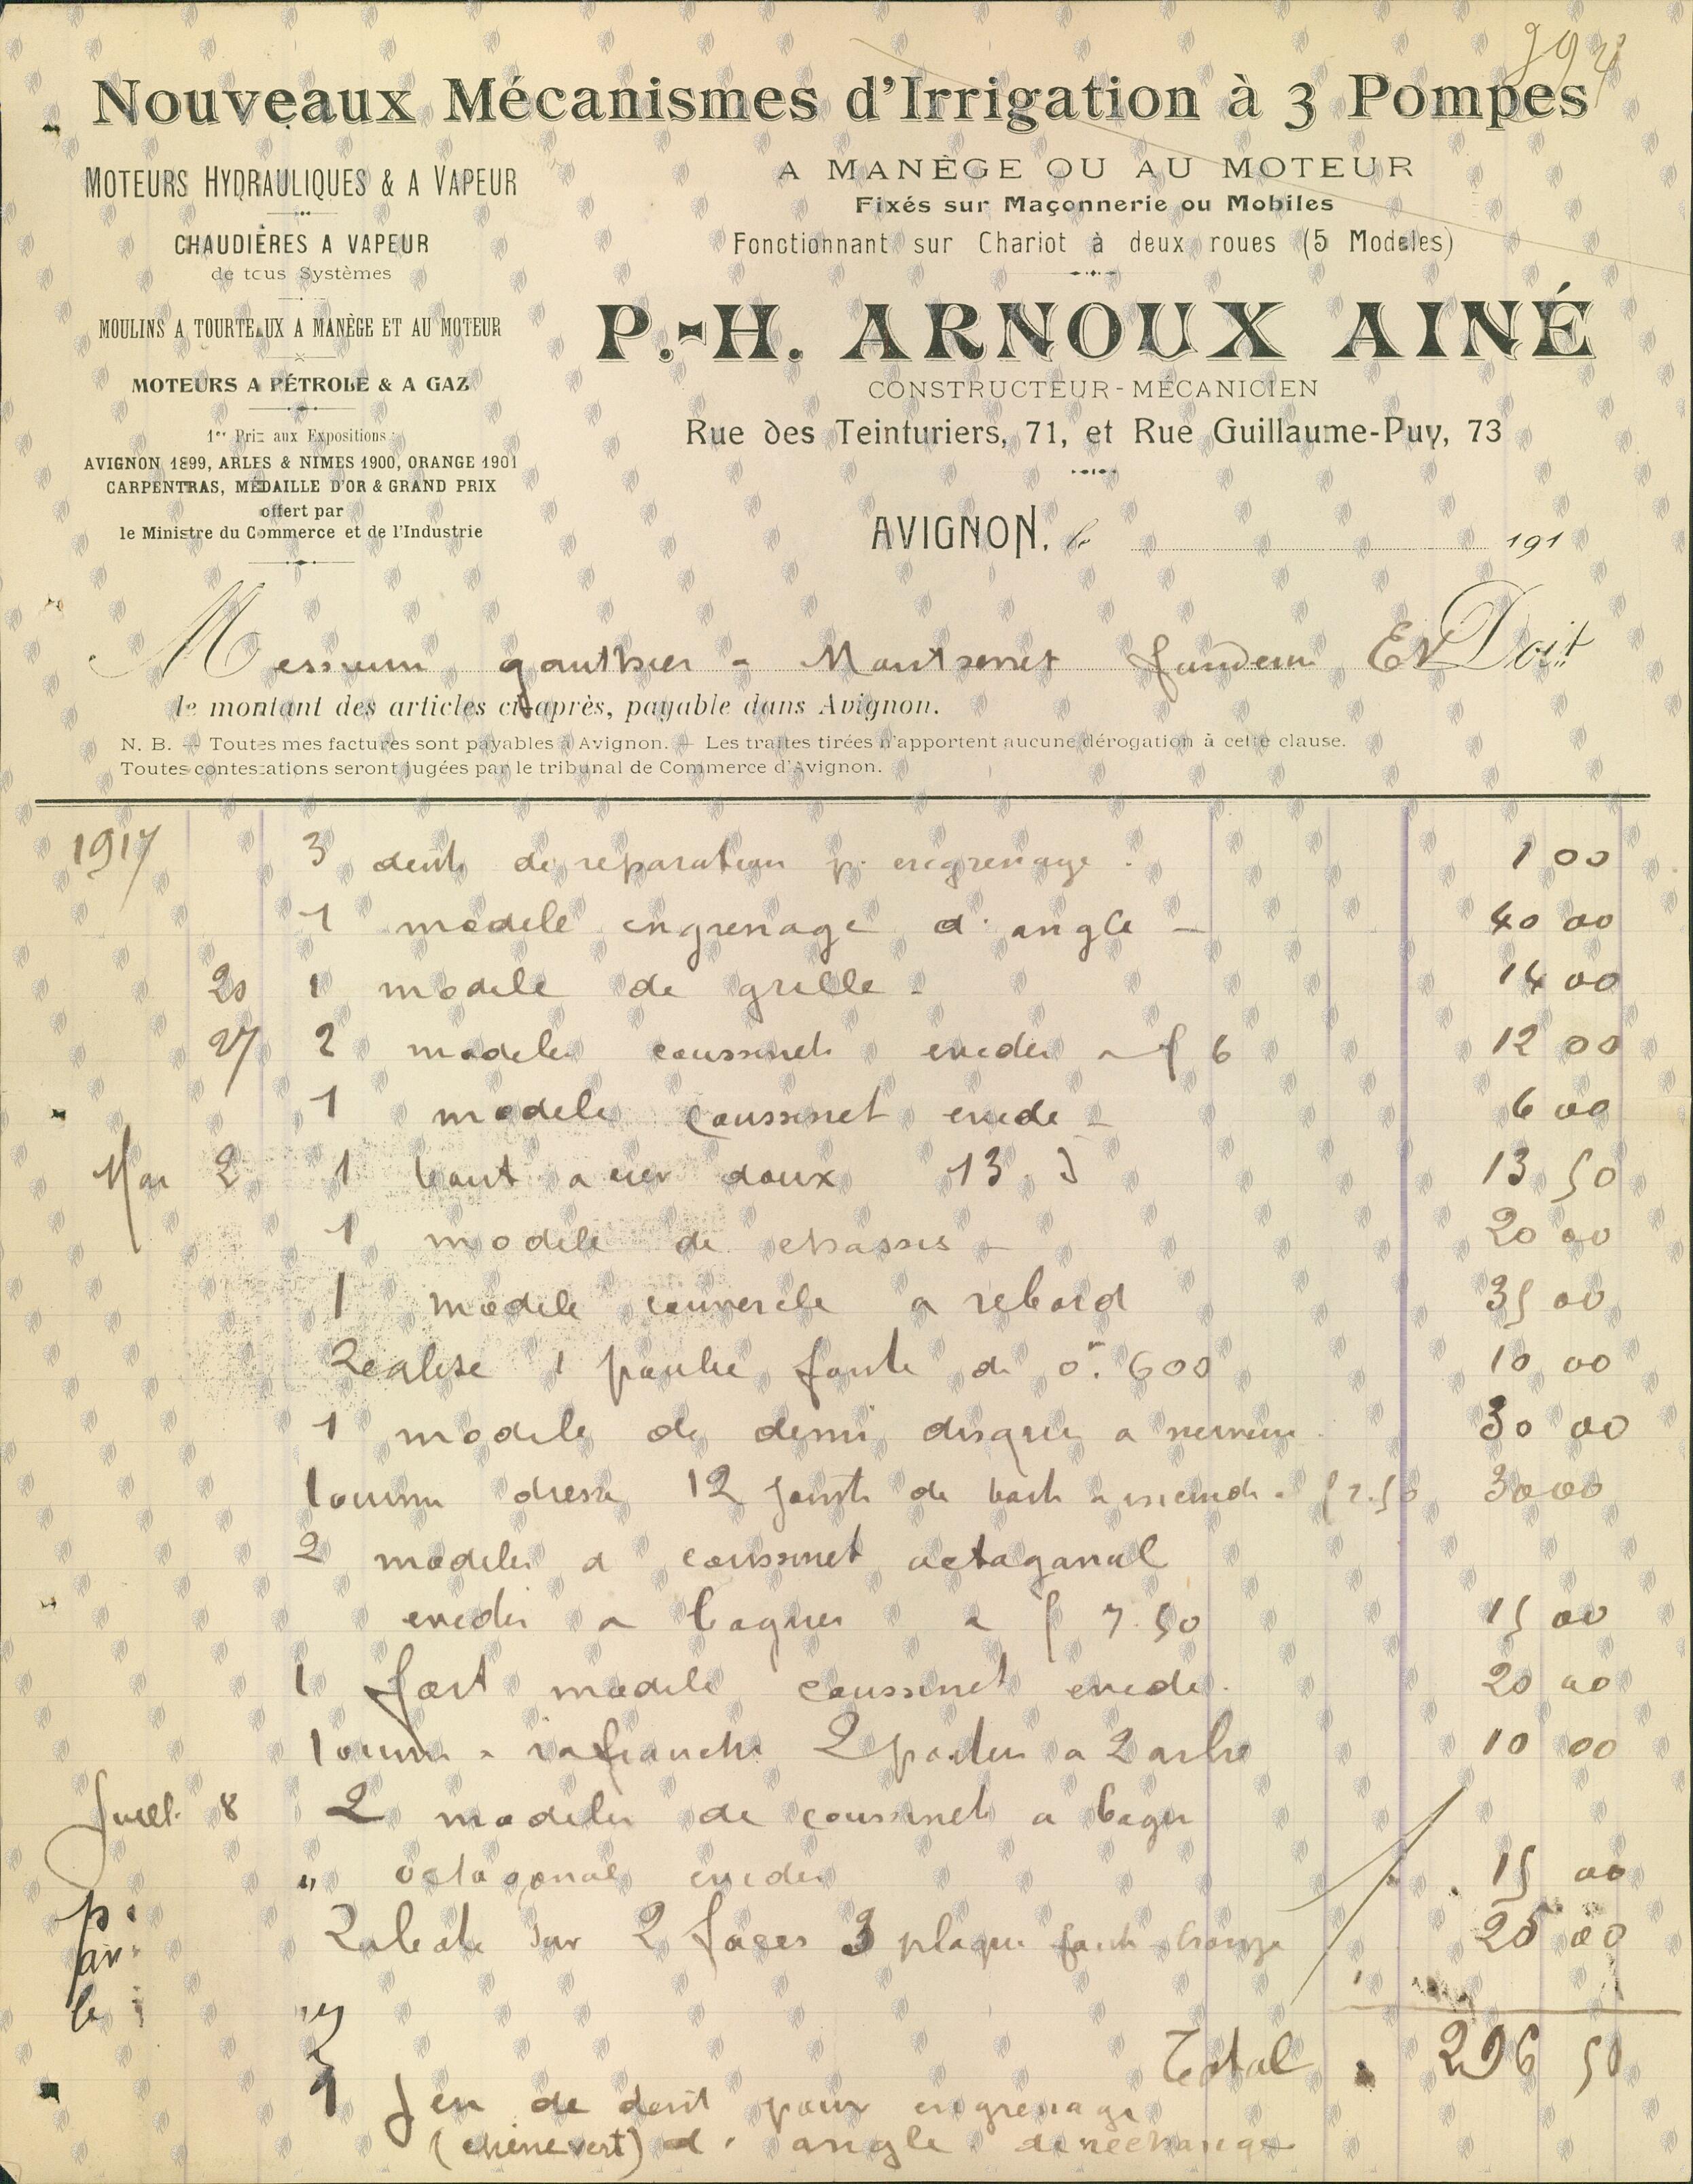 394
Nouveaux Mécanismes d'Irrigation à 3 Pompes
MOTEURS HYDRAULIQUES & A VAPEUR
CHAUDIÈRES A VAPEUR
de tous Systèmes
MOULINS A TOURTEAUX A MANÈGE ET AU MOTEUR
MOTEURS A PÉTROLE & A GAZ
1ers Prix aux Expositions :
AVIGNON 1899, ARLES & NIMES 1900, ORANGE 1901
CARPENTRAS, MÉDAILLE D'OR & GRAND PRIX
offert par
le Ministre du Commerce et de l'Industrie
A MANÈGE OU AU MOTEUR
Fixés sur Maçonnerie ou Mobiles
Fonctionnant sur Chariot à deux roues (5 Modèles)
P.-H. ARNOUX AINÉ
CONSTRUCTEUR-MÉCANICIEN
Rue des Teinturiers, 71, et Rue Guillaume-Puy, 73
AVIGNON, le 191
Messieurs gauthier - Montsenet fondeur EV Doit
le montant des articles ci-après, payable dans Avignon.
N. B. — Toutes mes factures sont payables à Avignon. — Les traites tirées n'apportent aucune dérogation à cette clause.
Toutes contestations seront jugées par le tribunal de Commerce d'Avignon.
1917 3 dents de reparation p. engrenage. 1 00
1 modele engrenage d'angle - 40 00
20 1 modele de grille - 14 00
27 2 modeles coussinets evides a f 6 12 00
1 modele coussinet evide - 6 00
Mai 2 1 bout acier doux 13 50
1 modele de chassis - 20 00
1 modele couvercle a rebord 35 00
Realise 1 poulie fonte de 0m. 600 10 00
1 modele de demi disque a 30 00
tourne dresse 12 joints de 2.50 30 00
2 modeles d coussinet octagonal
evides a bagues a f 7.50 15 00
1 fort modele coussinet evide. 20 00
tourne 2 portées a 2 arbre 10 00
Juill. 8 2 modeles de coussinets a bague
" octogonal evides 15 00
p. Rabote sur 2 faces 3 plaques fonte bronze 25 00
Total 296 50
1 jeu de dent pour engrenage
(chene vert) d'angle de rechange